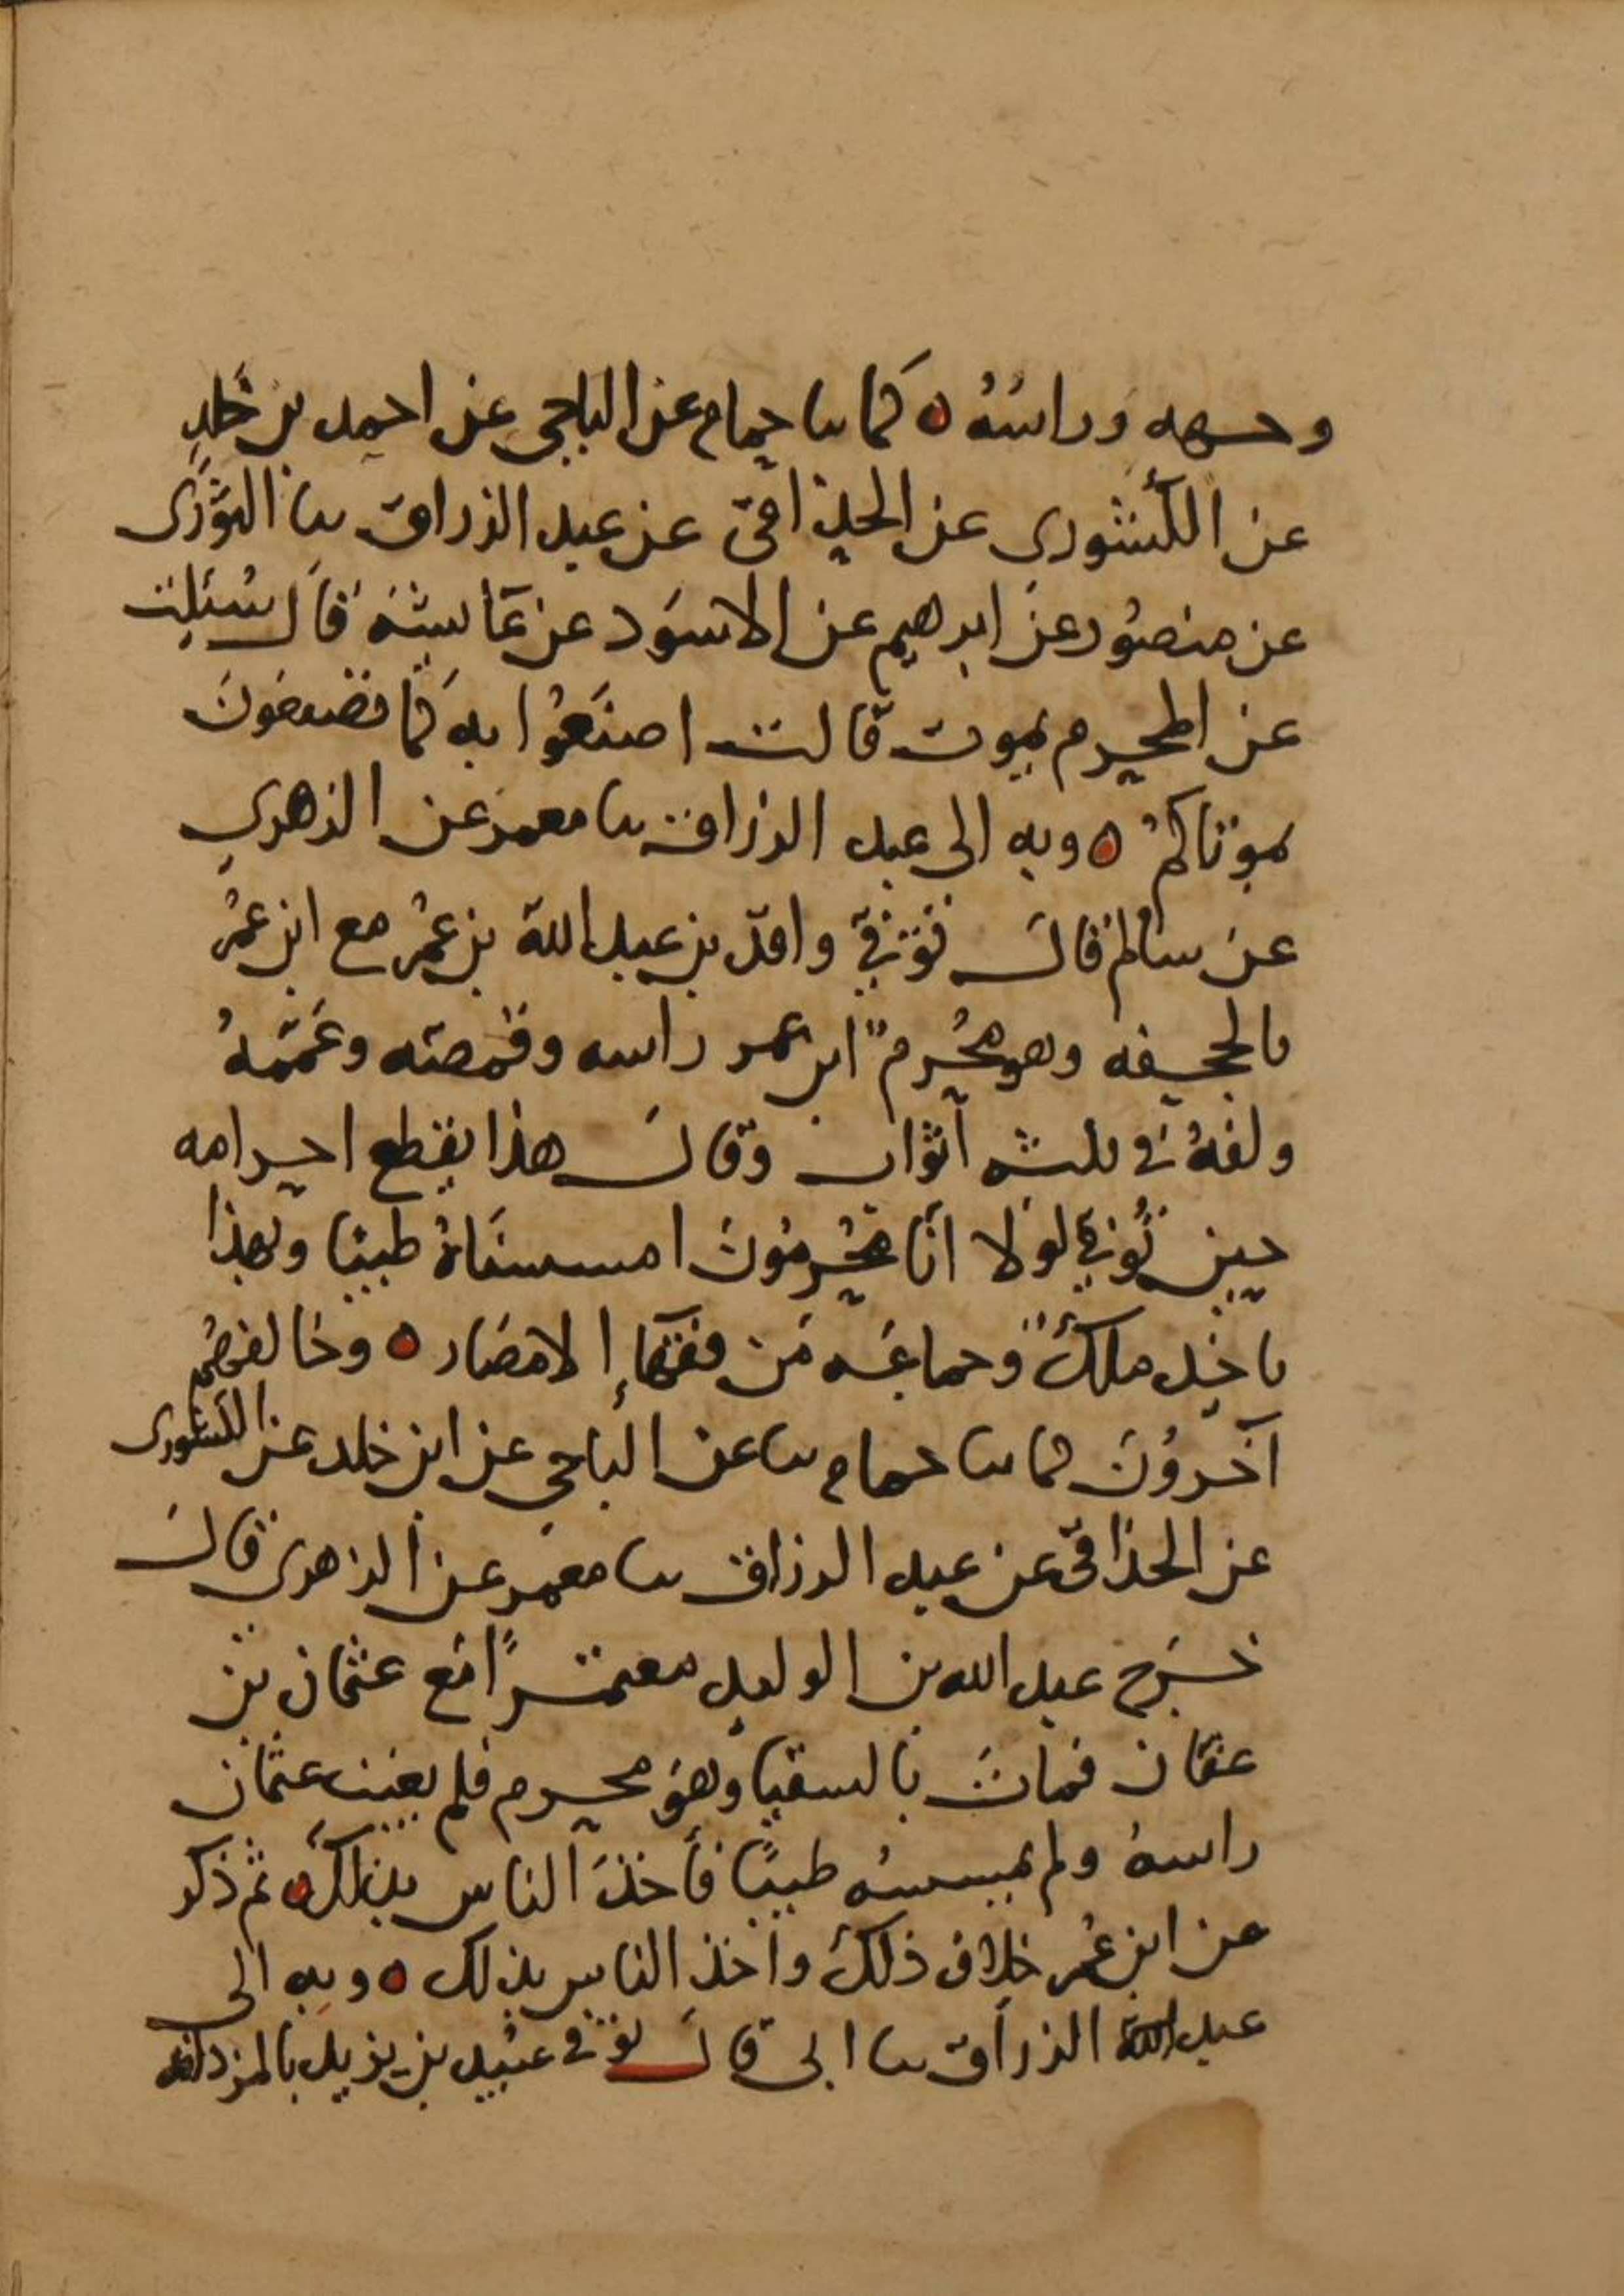 وجهه وراسه ه كما نا حمام عن الباجي عن احمد بن خلد
عن الكشوري عن الحذافي عن عبد الرزاق نا الثوري
عن منصور عن ابرهيم عن الاسود عن عائشة قال سئلت
عن المحرم يموت قالت اصنعوا به كما تصنعون
بموتاكم ه وبه الى عبد الرزاق نا معمر عن الزهري
عن سالم قال توفي واقد بن عبد الله بن عمر مع ابن عمر
بالجحفه وهو محرم ابن عمر راسه وقمصه وعممه
ولفه في ثلثه أثواب وقال هذا يقطع احرامه
حين توفي لولا انا محرمون امسسناه طيبا وبهذا
ياخذ ملك وجماعه من فقهاء الامصار ه وخالفهم
آخرون كما نا حمام نا عن الباجي عن ابن خلد عن الكشوري
عن الحذافي عن عبد الرزاق نا معمر عن الزهري قال
خرج عبد الله بن الوليد معتمرًا مع عثمان بن
عفان فمات بالسقيا وهو محرم فلم يغيب عثمان
راسه ولم يمسسه طيبًا فأخذ الناس بذلك ه ثم ذكر
عن ابن عمر خلاف ذلك واخذ الناس بذلك ه وبه الى
عبد الرزاق نا ابي قال توفي عبيد بن يزيد بالمزدلفه